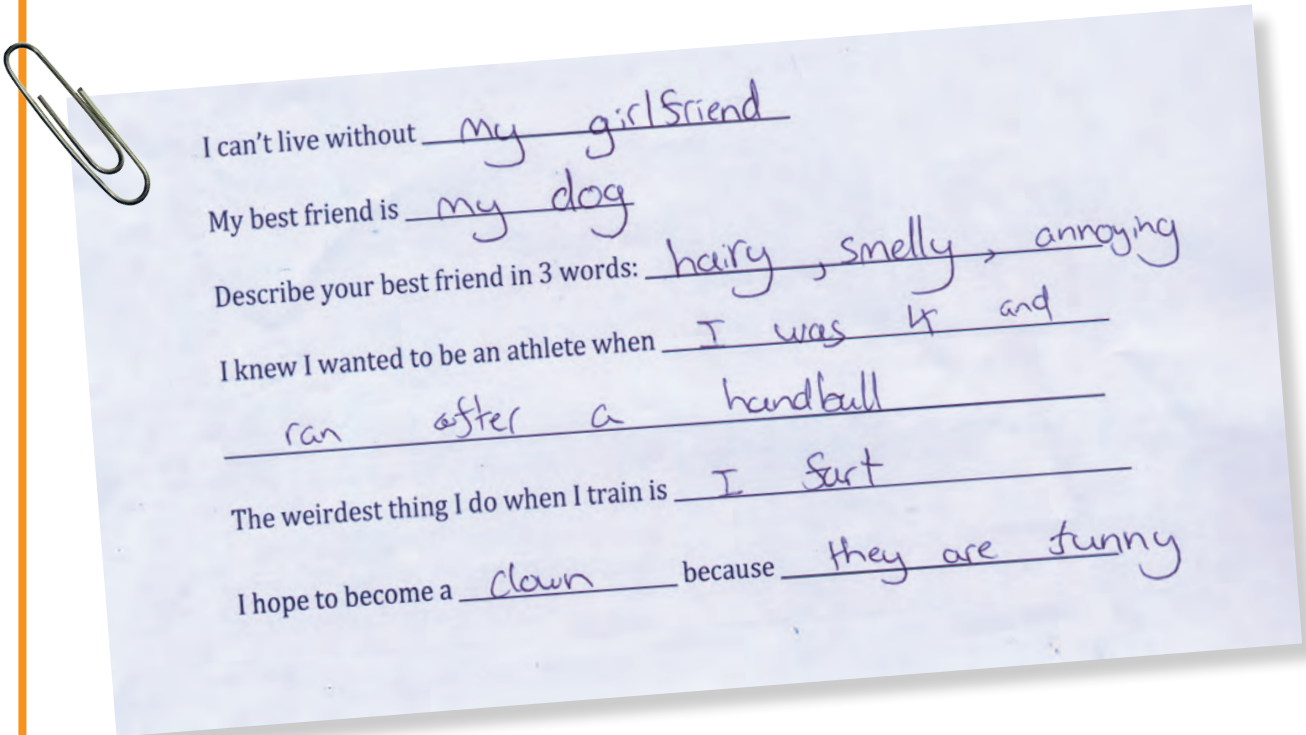 I can't live without my girlfriend
My best friend is my dog
Describe your best friend in 3 words: hairy, smelly, annoying
I knew I wanted to be an athlete when I was 4 and
ran after a handball
The weirdest thing I do when I train is I fart
I hope to become a clown because they are funny